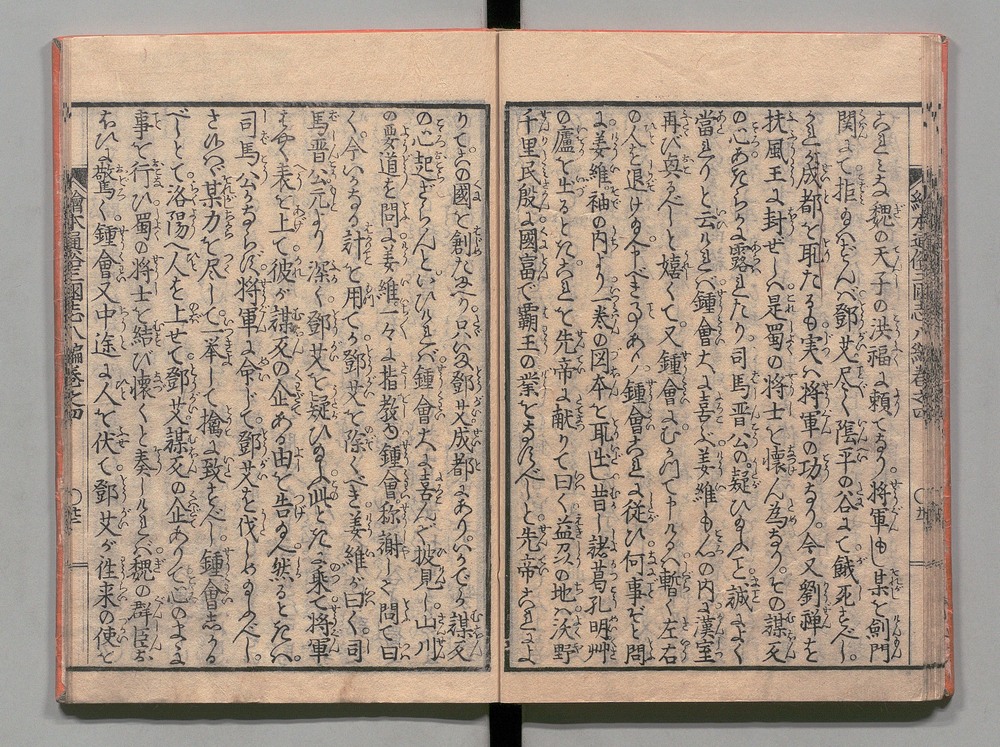 これみな魏の天子の洪福に頼てなり将軍もし某を剣門
関にて拒ゐへんば鄧艾尽く陰平の谷にて餓死すべし
かれが成都を取たるも実は将軍の功なり今又劉禅を
扶風王に封ぜしは是蜀の将士を懐ん為ちかその謀反
の心あきらかに露れたり司馬晋公の疑ひゐふ上誠によく
當れりと云ければ鍾會大に喜ぶ姜維も心の内に漢室
再び興るべしと嬉くて又鍾會にむかつて申けるは暫く左右
の人を退けゐへ申べき事あり鍾會これに従ひ何事ぞと問
に姜維袖の内より一巻の図本を取出し昔し諸葛孔明艸
の廬を出るときこれを先帝に献りて曰く益州の地は沃野
千里民殷に國富で覇王の業をなすべしと先帝これによ
りて此國を創たまへりいま鄧艾成都にありいかでか謀反
の心起ざらんといひければ鍾會大に喜んで披見し山川
の要道を問に姜維一々に指教ゆ鍾會称謝して問て曰
く今いかなる計を用てか鄧艾を除くべき姜維が曰く司
馬晋公元より深く鄧艾を疑ひゐふ此ときに乗て将軍
はやく表を上て彼が謀反の企ある由を告ゐへ然るときは
司馬公かならず将軍に命じて鄧艾を伐しめゐふべし
さあらば某力を尽して一挙して擒に致すべし鍾會しかる
べしとて洛陽へ人を上せて鄧艾謀反の企ありて心のまゝに
事を行ひ蜀の将士を結び懐くと奏しければ魏の群臣お
ほひに驚く鍾會又中途に人を伏て鄧艾が往来の使を
繪本通俗三國志八編巻之四
繪本通俗三國志八編巻之四